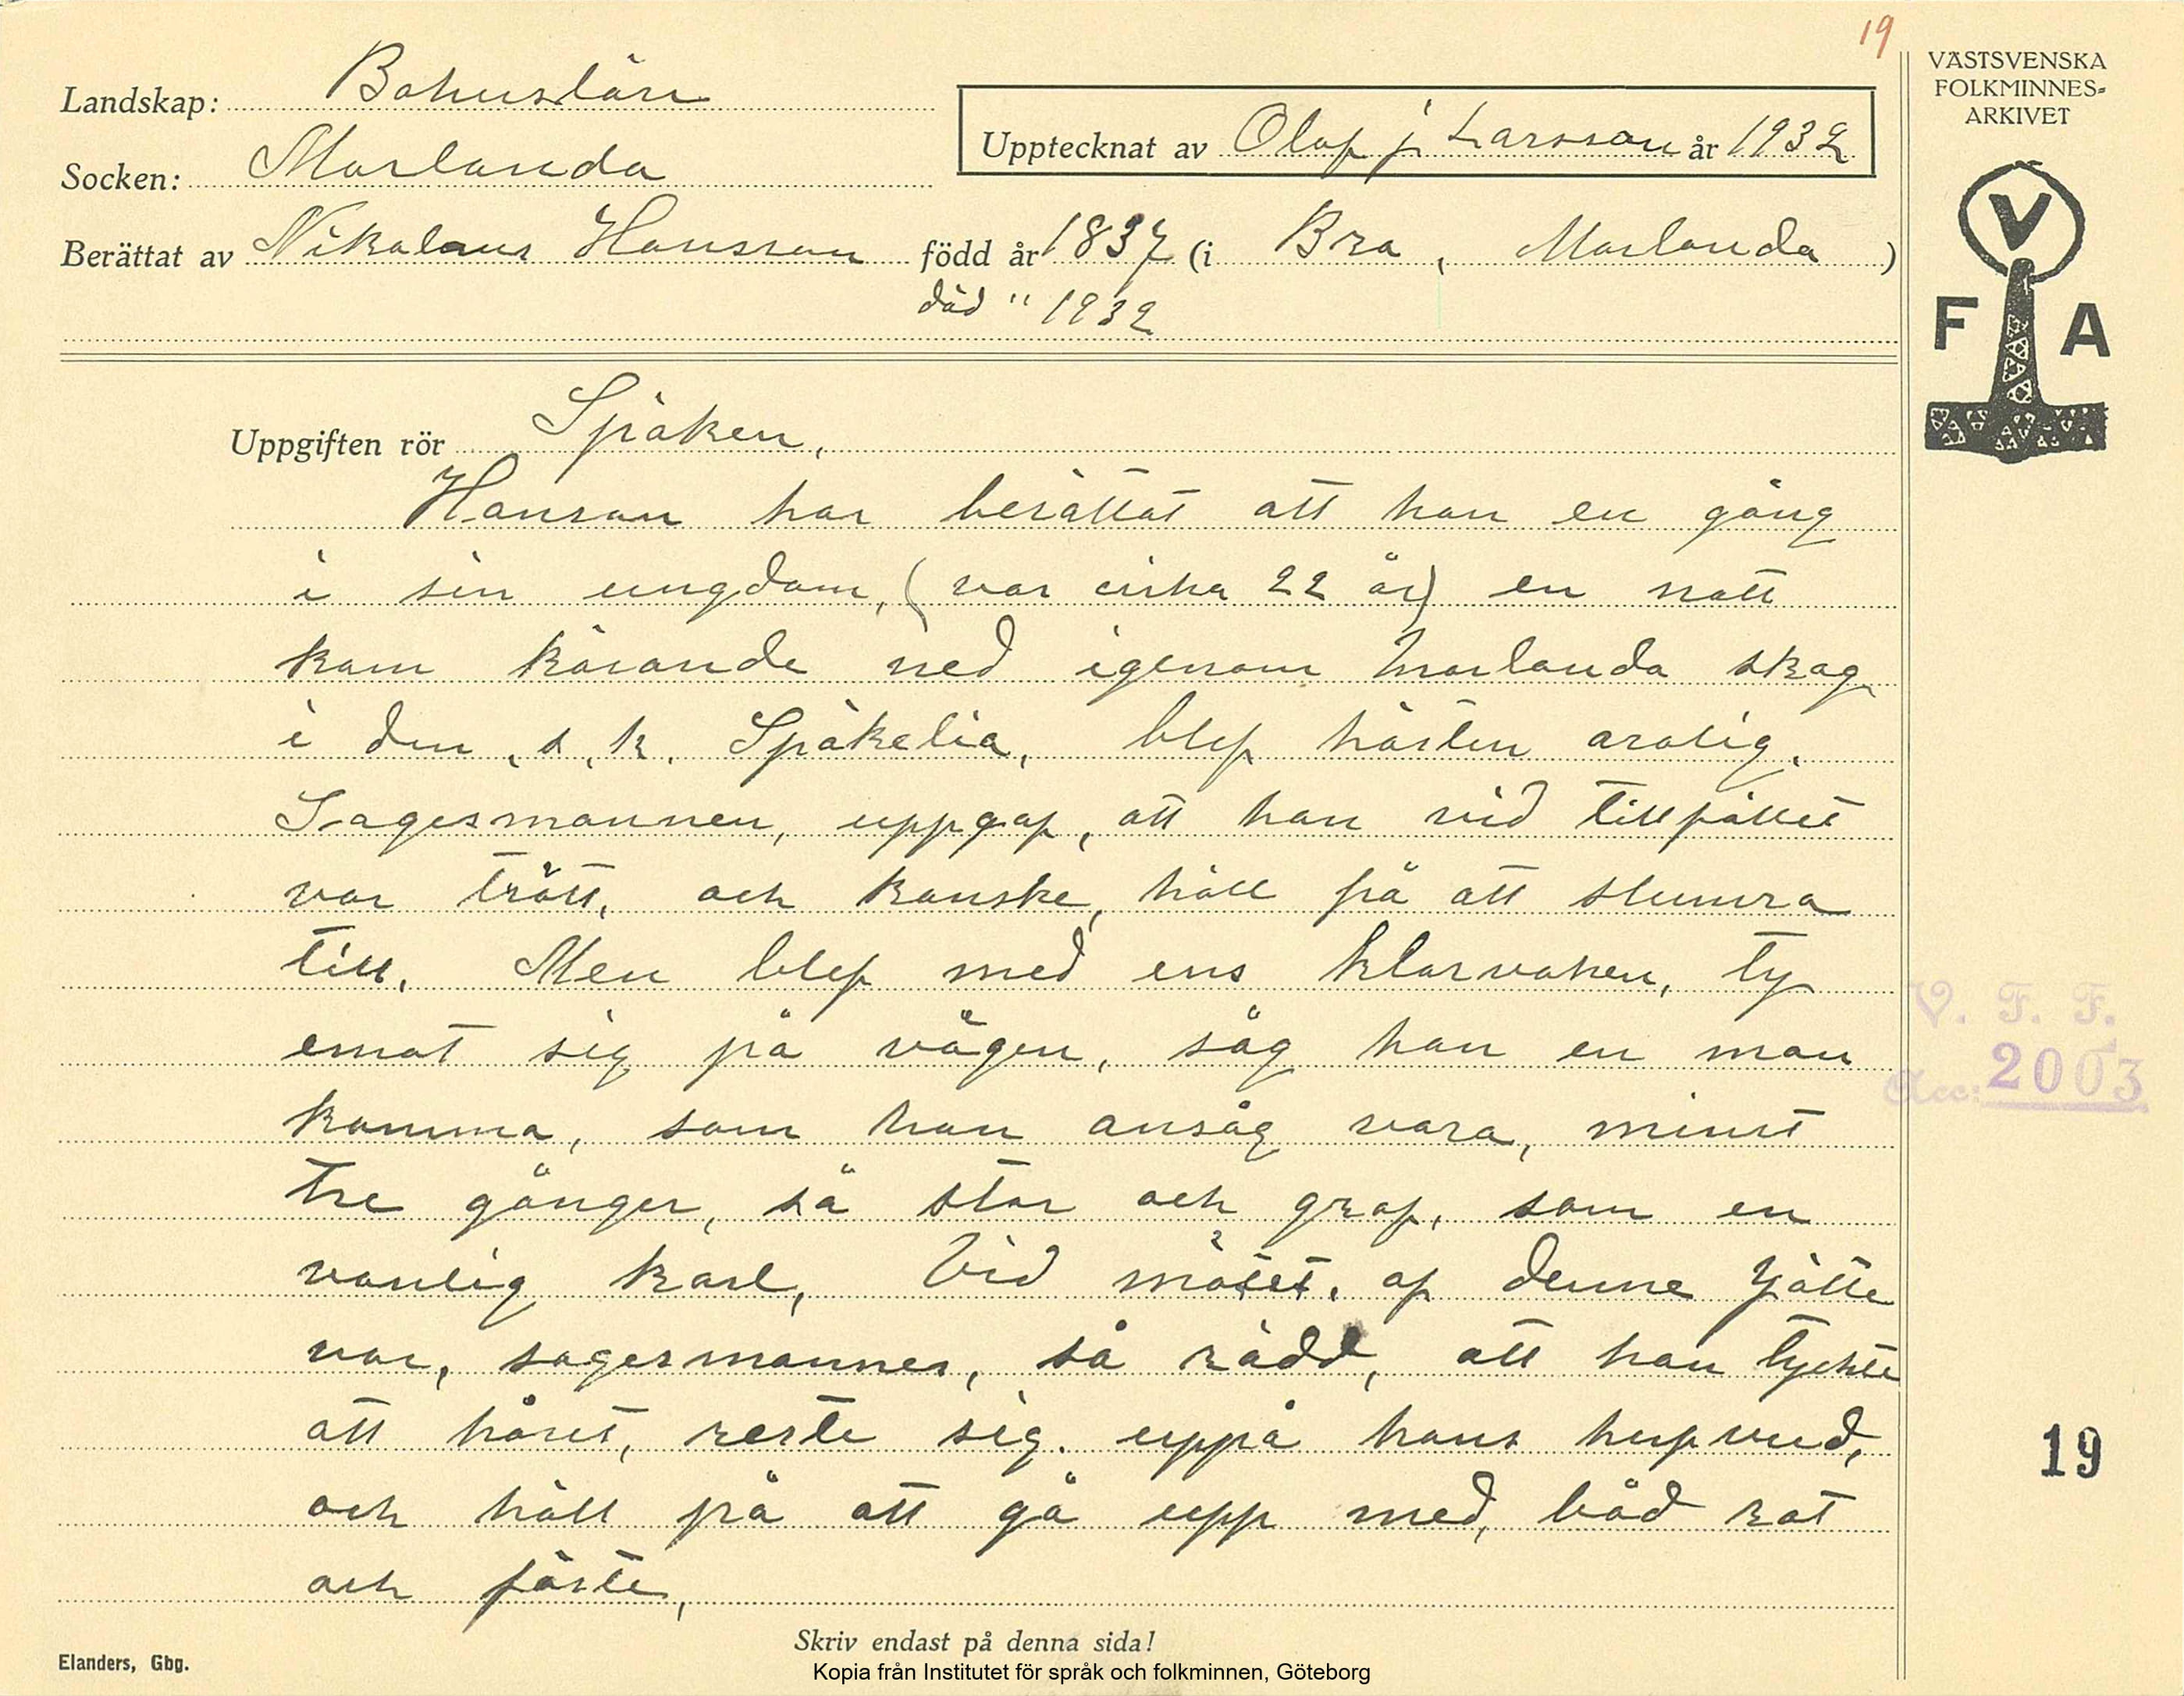 19
Landskap: Bohuslän
Socken: Morlanda
Upptecknat av Olof J Larsson år 1932
Berättat av Nikolaus Hansson född år 1837 (i Bra, Morlanda)
död " 1932
VÄSTSVENSKA
FOLKMINNES-
ARKIVET
V
F A
Uppgiften rör Spöken,
Hanson har berättat att han en gång
i sin ungdom, (var cirka 22 år) en natt
kom körande ned igenom Morlanda skog
i den s, k. Spökelia, blef hästen orolig.
Sagesmannen, uppgaf, att han vid tillfället
var trött, och kanske, höll på att slumra
till. Men blef med ens klarvaken, ty
emot sig på vägen, såg han en man
komma, som han ansåg vara, minst
tre gånger, så stor och grof, som en
vanlig karl, Vid mötet, af denne Jätte
var, sagesmannen, så rädd, att han tyckte
att håret, reste sig. uppå hans hufvud,
och höll på att gå upp med, båd rot
och fäste,
V. F. F.
Acc: 2003
19
Skriv endast på denna sida!
Elanders, Gbg.
Kopia från Institutet för språk och folkminnen, Göteborg